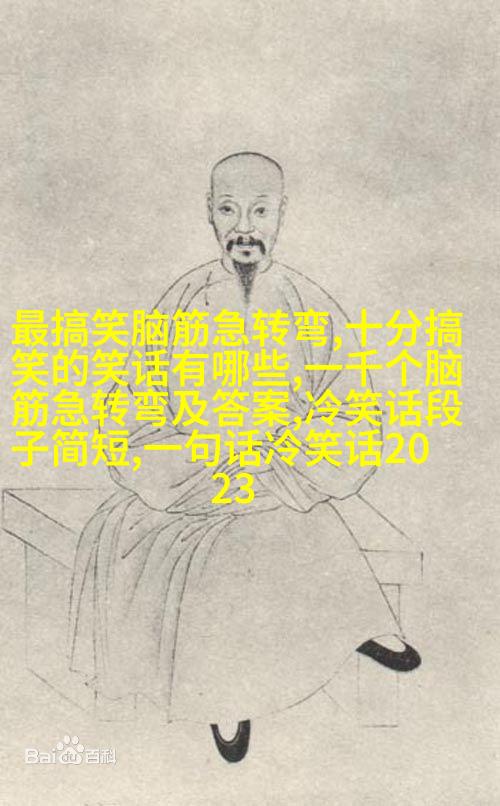 最搞笑脑筋急转弯,十分搞
笑的笑话有哪些,一千个脑
筋急转弯及答案,冷笑话段
子简短,一句话冷笑话20
23
Bai du 百科